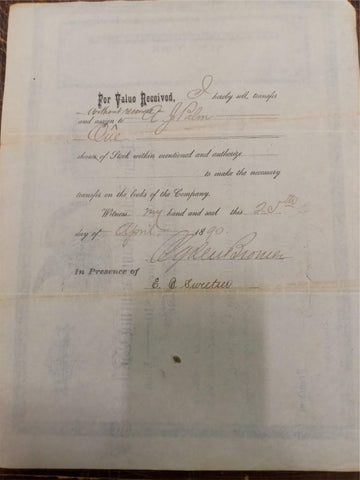 For Value Received, I hereby sell, transfer
without recourse
and assign to A J Palm
One
shares of Stock within mentioned and authorize
to make the necessary
transfer on the books of the Company.
Witness my hand and seal this 25th
day of April 1890.
In Presence of
E. C. Sweetser